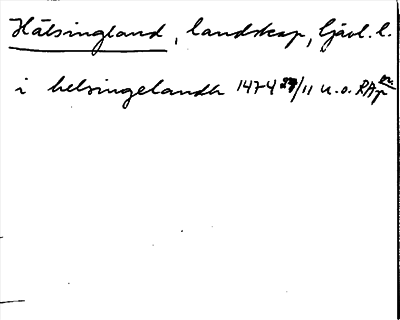 Hälsingland, landskap, Gävl. l.
i helsingelandh 1474 29/11 u.o. RAp or